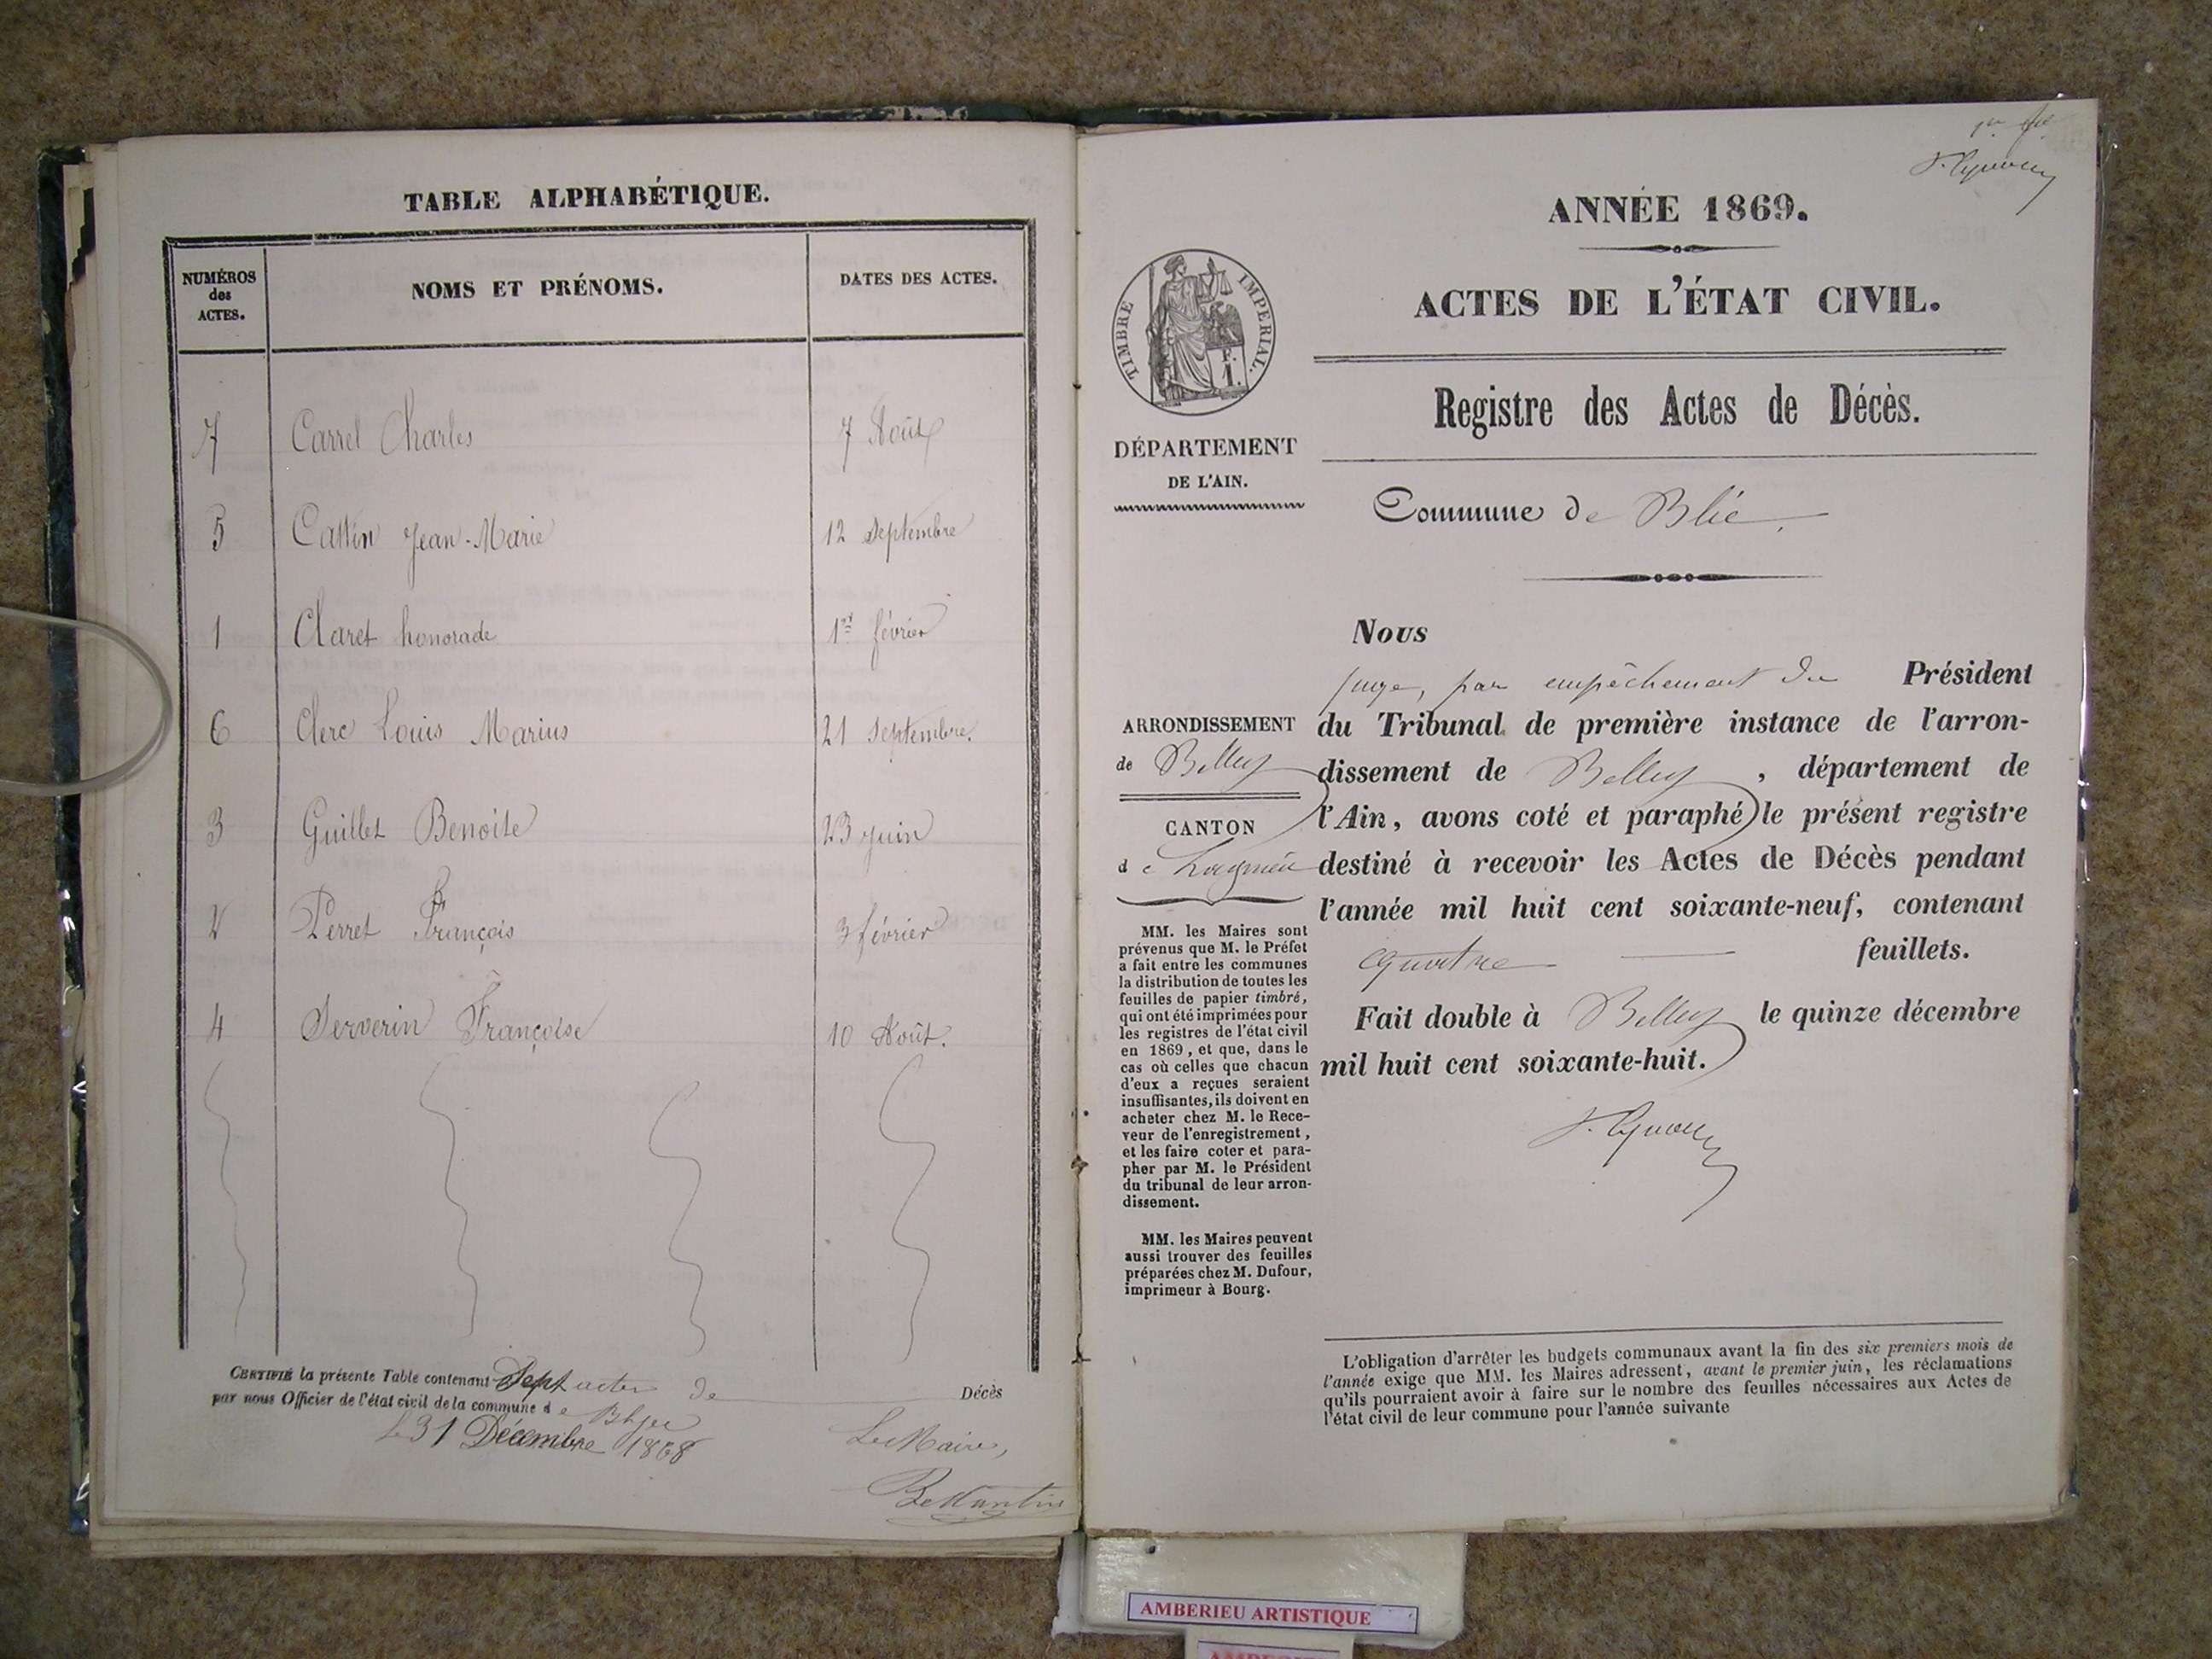 TABLE ALPHABÉTIQUE.
NUMÉROS des ACTES.
NOMS ET PRÉNOMS.
DATES DES ACTES.
7 Carrel Charles 7 Août
5 Cattin Jean-Marie 12 Septembre
1 Claret honorade 1er février
6 Clerc Louis Marius 21 Septembre.
3 Guillet Benoite 23 juin
2 Perret François 3 février
4 Serverin Françoise 10 Août.
CERTIFIÉ la présente Table contenant Sept actes de Décès
par nous Officier de l'état civil de la commune de
Le 31 Décembre 1868
Le Maire,
ANNÉE 1869.
ACTES DE L'ÉTAT CIVIL.
TIMBRE IMPERIAL.
F.
1.
Registre des Actes de Décès.
DÉPARTEMENT
DE L'AIN.
Commune de Blie.
ARRONDISSEMENT
de Belley
CANTON
de Lagnieu
MM. les Maires sont
prévenus que M. le Préfet
a fait entre les communes
la distribution de toutes les
feuilles de papier timbré,
qui ont été imprimées pour
les registres de l'état civil
en 1869, et que, dans le
cas où celles que chacun
d'eux a reçues seraient
insuffisantes, ils doivent en
acheter chez M. le Rece-
veur de l'enregistrement,
et les faire coter et para-
pher par M. le Président
du tribunal de leur arron-
dissement.
MM. les Maires peuvent
aussi trouver des feuilles
préparées chez M. Dufour,
imprimeur à Bourg.
Nous
juge, par empêchement du Président
du Tribunal de première instance de l'arron-
dissement de Belley, département de
l'Ain, avons coté et paraphé le présent registre
destiné à recevoir les Actes de Décès pendant
l'année mil huit cent soixante-neuf, contenant
quatre feuillets.
Fait double à Belley le quinze décembre
mil huit cent soixante-huit.
L'obligation d'arrêter les budgets communaux avant la fin des six premiers mois de
l'année exige que MM. les Maires adressent, avant le premier juin, les réclamations
qu'ils pourraient avoir à faire sur le nombre des feuilles nécessaires aux Actes de
l'état civil de leur commune pour l'année suivante
AMBERIEU ARTISTIQUE